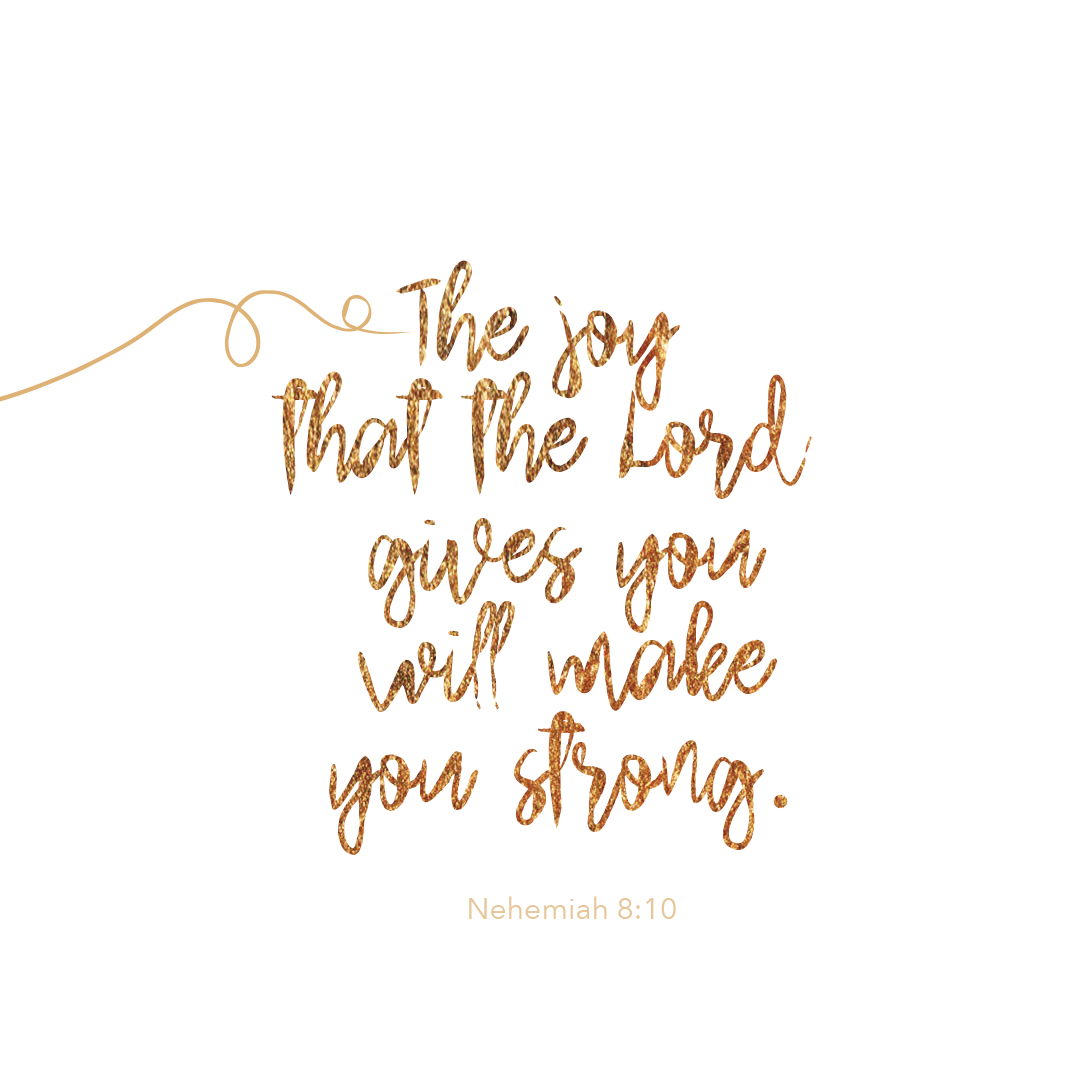 The joy
that the Lord
gives you
will make
you strong.
Nehemiah 8:10